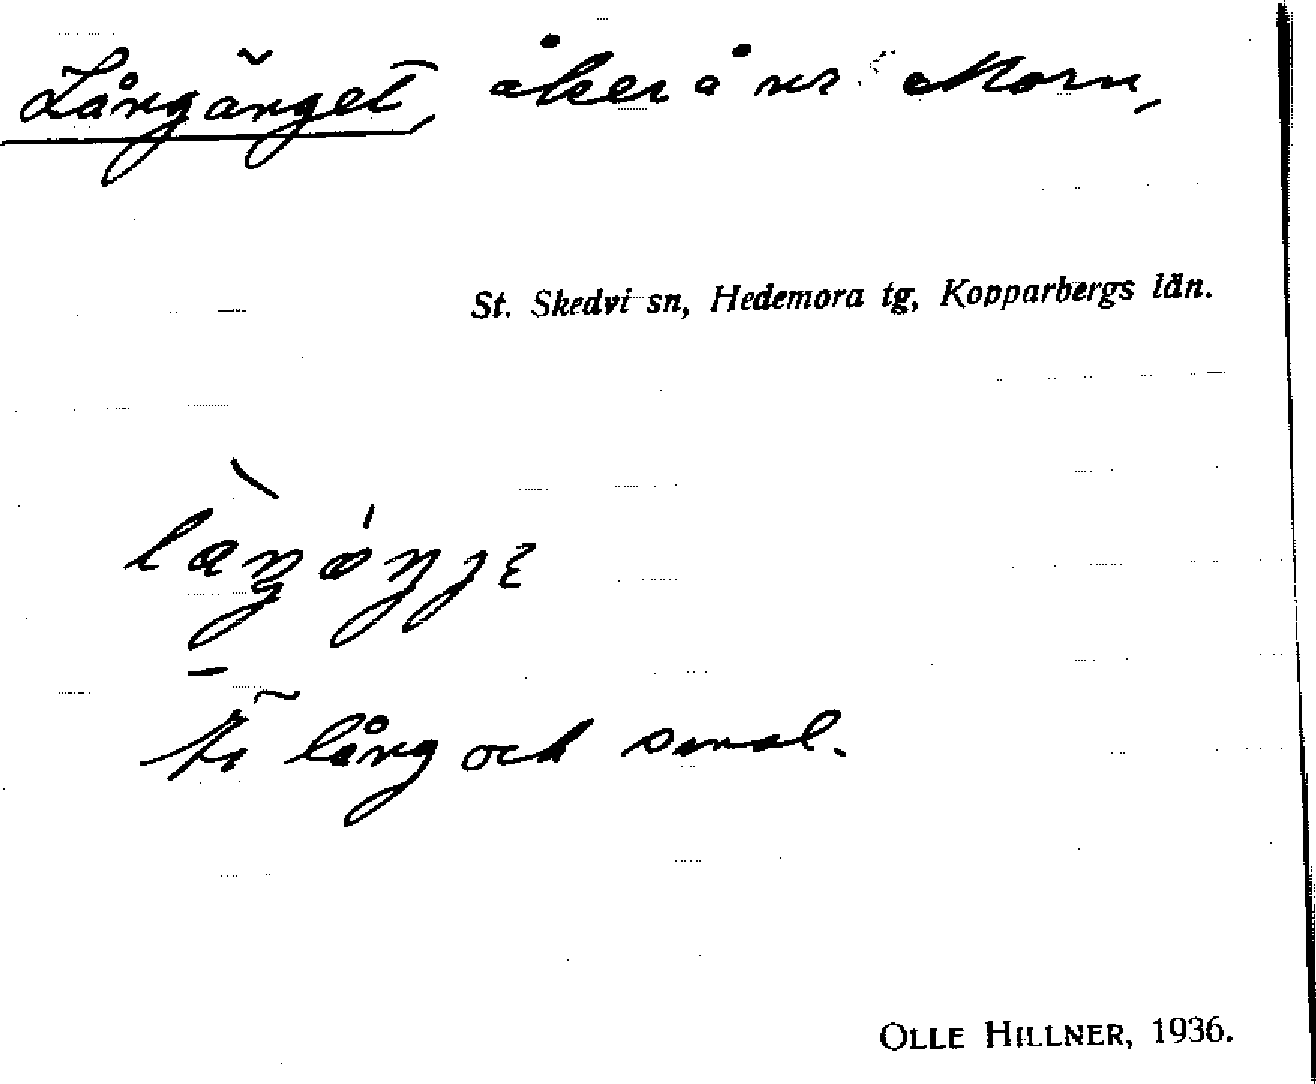 Långänget, åker å nr Morn,
St. Skedvi sn, Hedemora tg, Kopparbergs län.
lång och smal.
OLLE HILLNER, 1936.